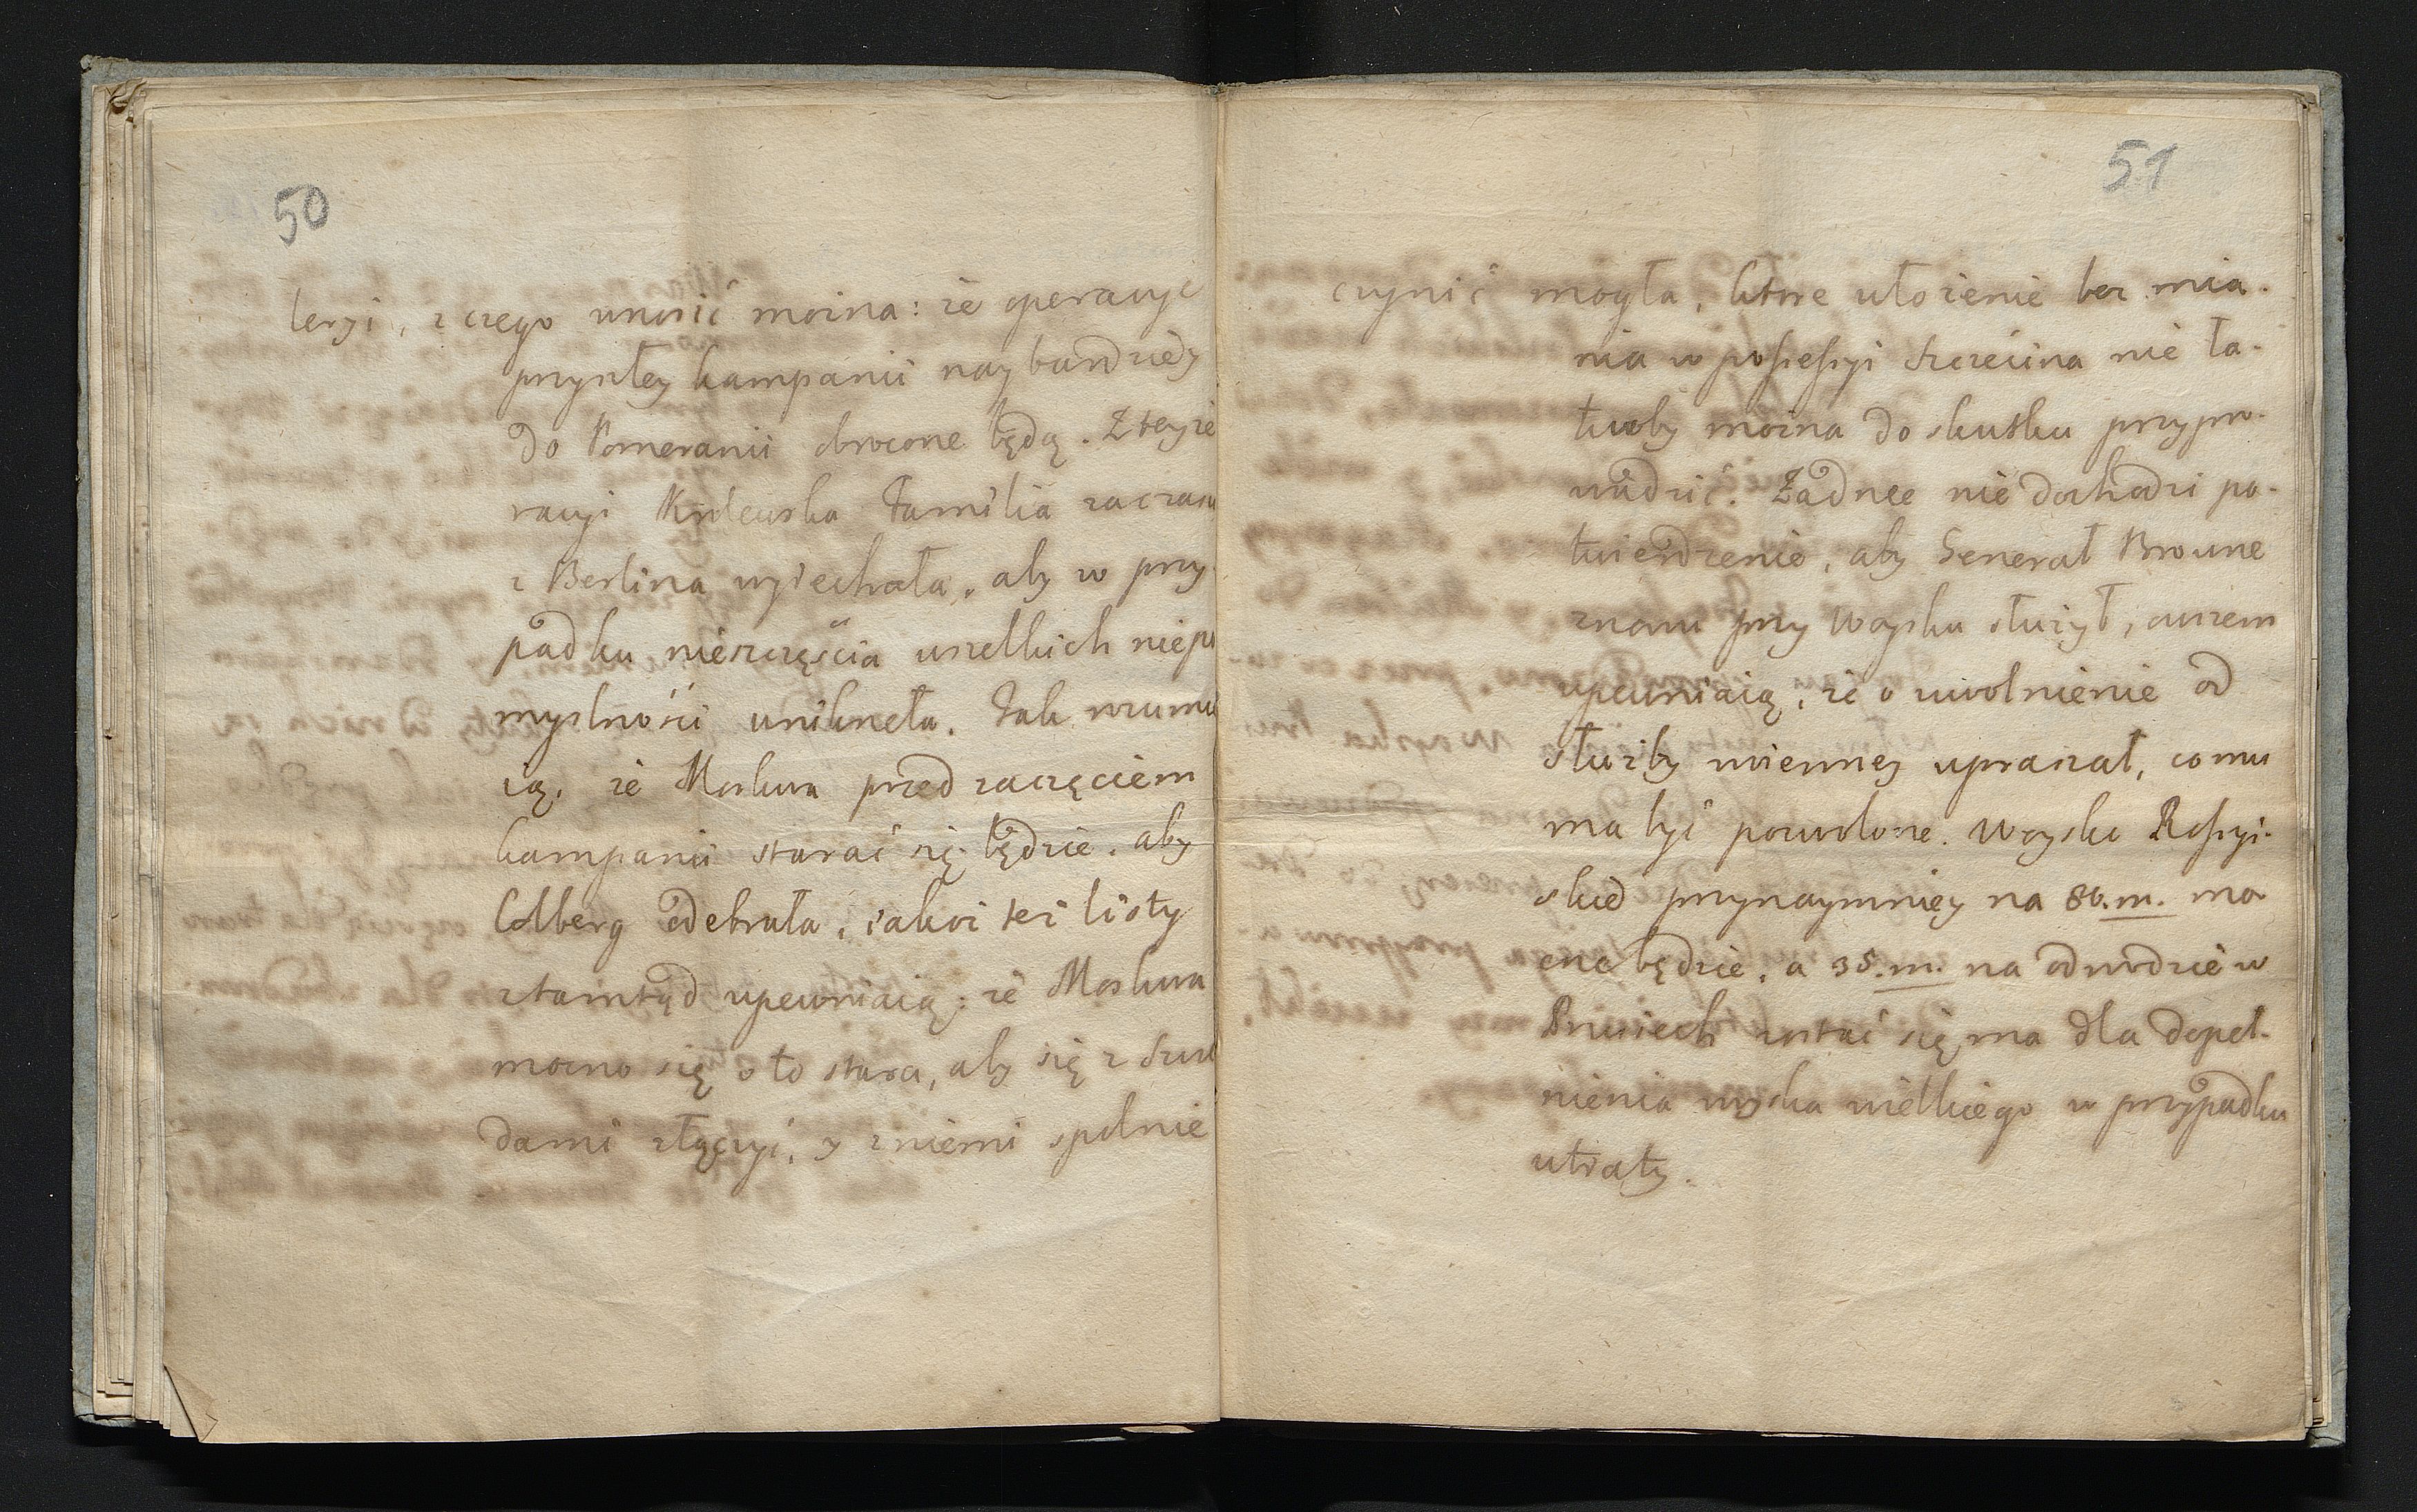 50
leryi, z czego wnosić mozna: że operacye
przyszłey kampanii naybardziey
do Pomeranii obrocone będą. Z teyże
racyi Krolewska Familia zaczasu
z Berlina wyiechała, aby w przy
padku nieszczęścia wszelkich niepo
myslności unikneła. Tak rozumi
ią, że Moskwa przed zaczęciem
kampanii starać się będzie, aby
Colberg odebrała, iakoż też listy
ztamtąd upewniaią: że Moskwa
mocno się o to stara, aby się z Szwe
dami złączyć, y z niemi spolnie
51
czynić mogła, ktore ułożenie bez mia-
nia w possessyi Szczecina nie ła-
twoby można do skutku przypro-
wadzić. Żadnee nie dochodzi po-
twierdzenie, aby Generał Broune
znowu przy Woysku służył, owszem
upewniaią, że o uwolnienie od
służby woienney upraszał, co mu
ma być pozwolone. Woysko Rossyi-
skie przynaymniey na 80.m. mo
cne będzie, a 35.m. na odwodzie w
Prusiech zostać się ma dla dopeł-
nienia woyska wielkiego w przypadku
utraty.